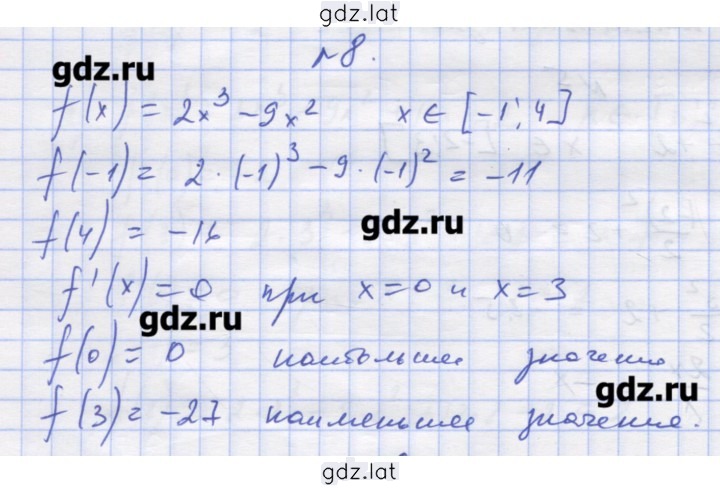 gdz.lat
№8.
gdz.ru
f(x) = 2x³ - 9x² x ∈ [-1; 4]
f(-1) = 2 · (-1)³ - 9 · (-1)² = -11
f(4) = -16
gdz.ru
f'(x) = 0 при x = 0 и x = 3
gdz.ru
f(0) = 0 наибольшее значение
gdz.ru
f(3) = -27 наименьшее значение.
gdz.lat